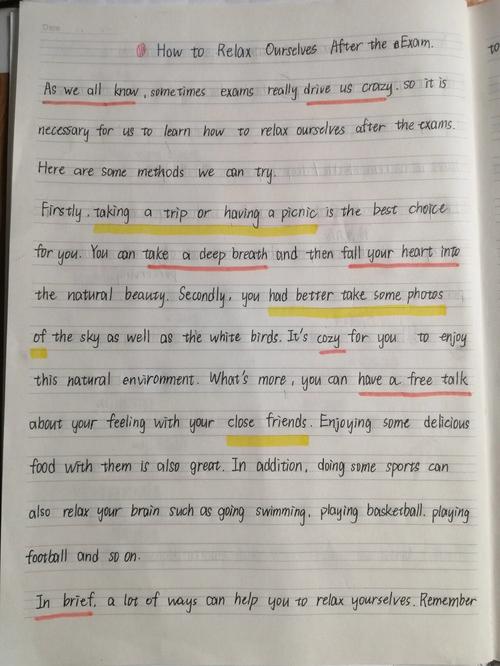 Date
How to Relax Ourselves After the Exam.
As we all know, sometimes exams really drive us crazy. so it is
necessary for us to learn how to relax ourselves after the exams.
Here are some methods we can try.
Firstly, taking a trip or having a picnic is the best choice
for you. You can take a deep breath and then fall your heart into
the natural beauty. Secondly, you had better take some photos
of the sky as well as the white birds. It's cozy for you to enjoy
this natural environment. What's more, you can have a free talk
about your feeling with your close friends. Enjoying some delicious
food with them is also great. In addition, doing some sports can
also relax your brain such as going swimming, playing basketball, playing
football and so on.
In brief, a lot of ways can help you to relax yourselves. Remember
to